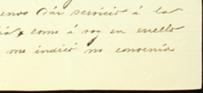 enos dar servicio á la
como á voy en cuello
me indicó no convenía